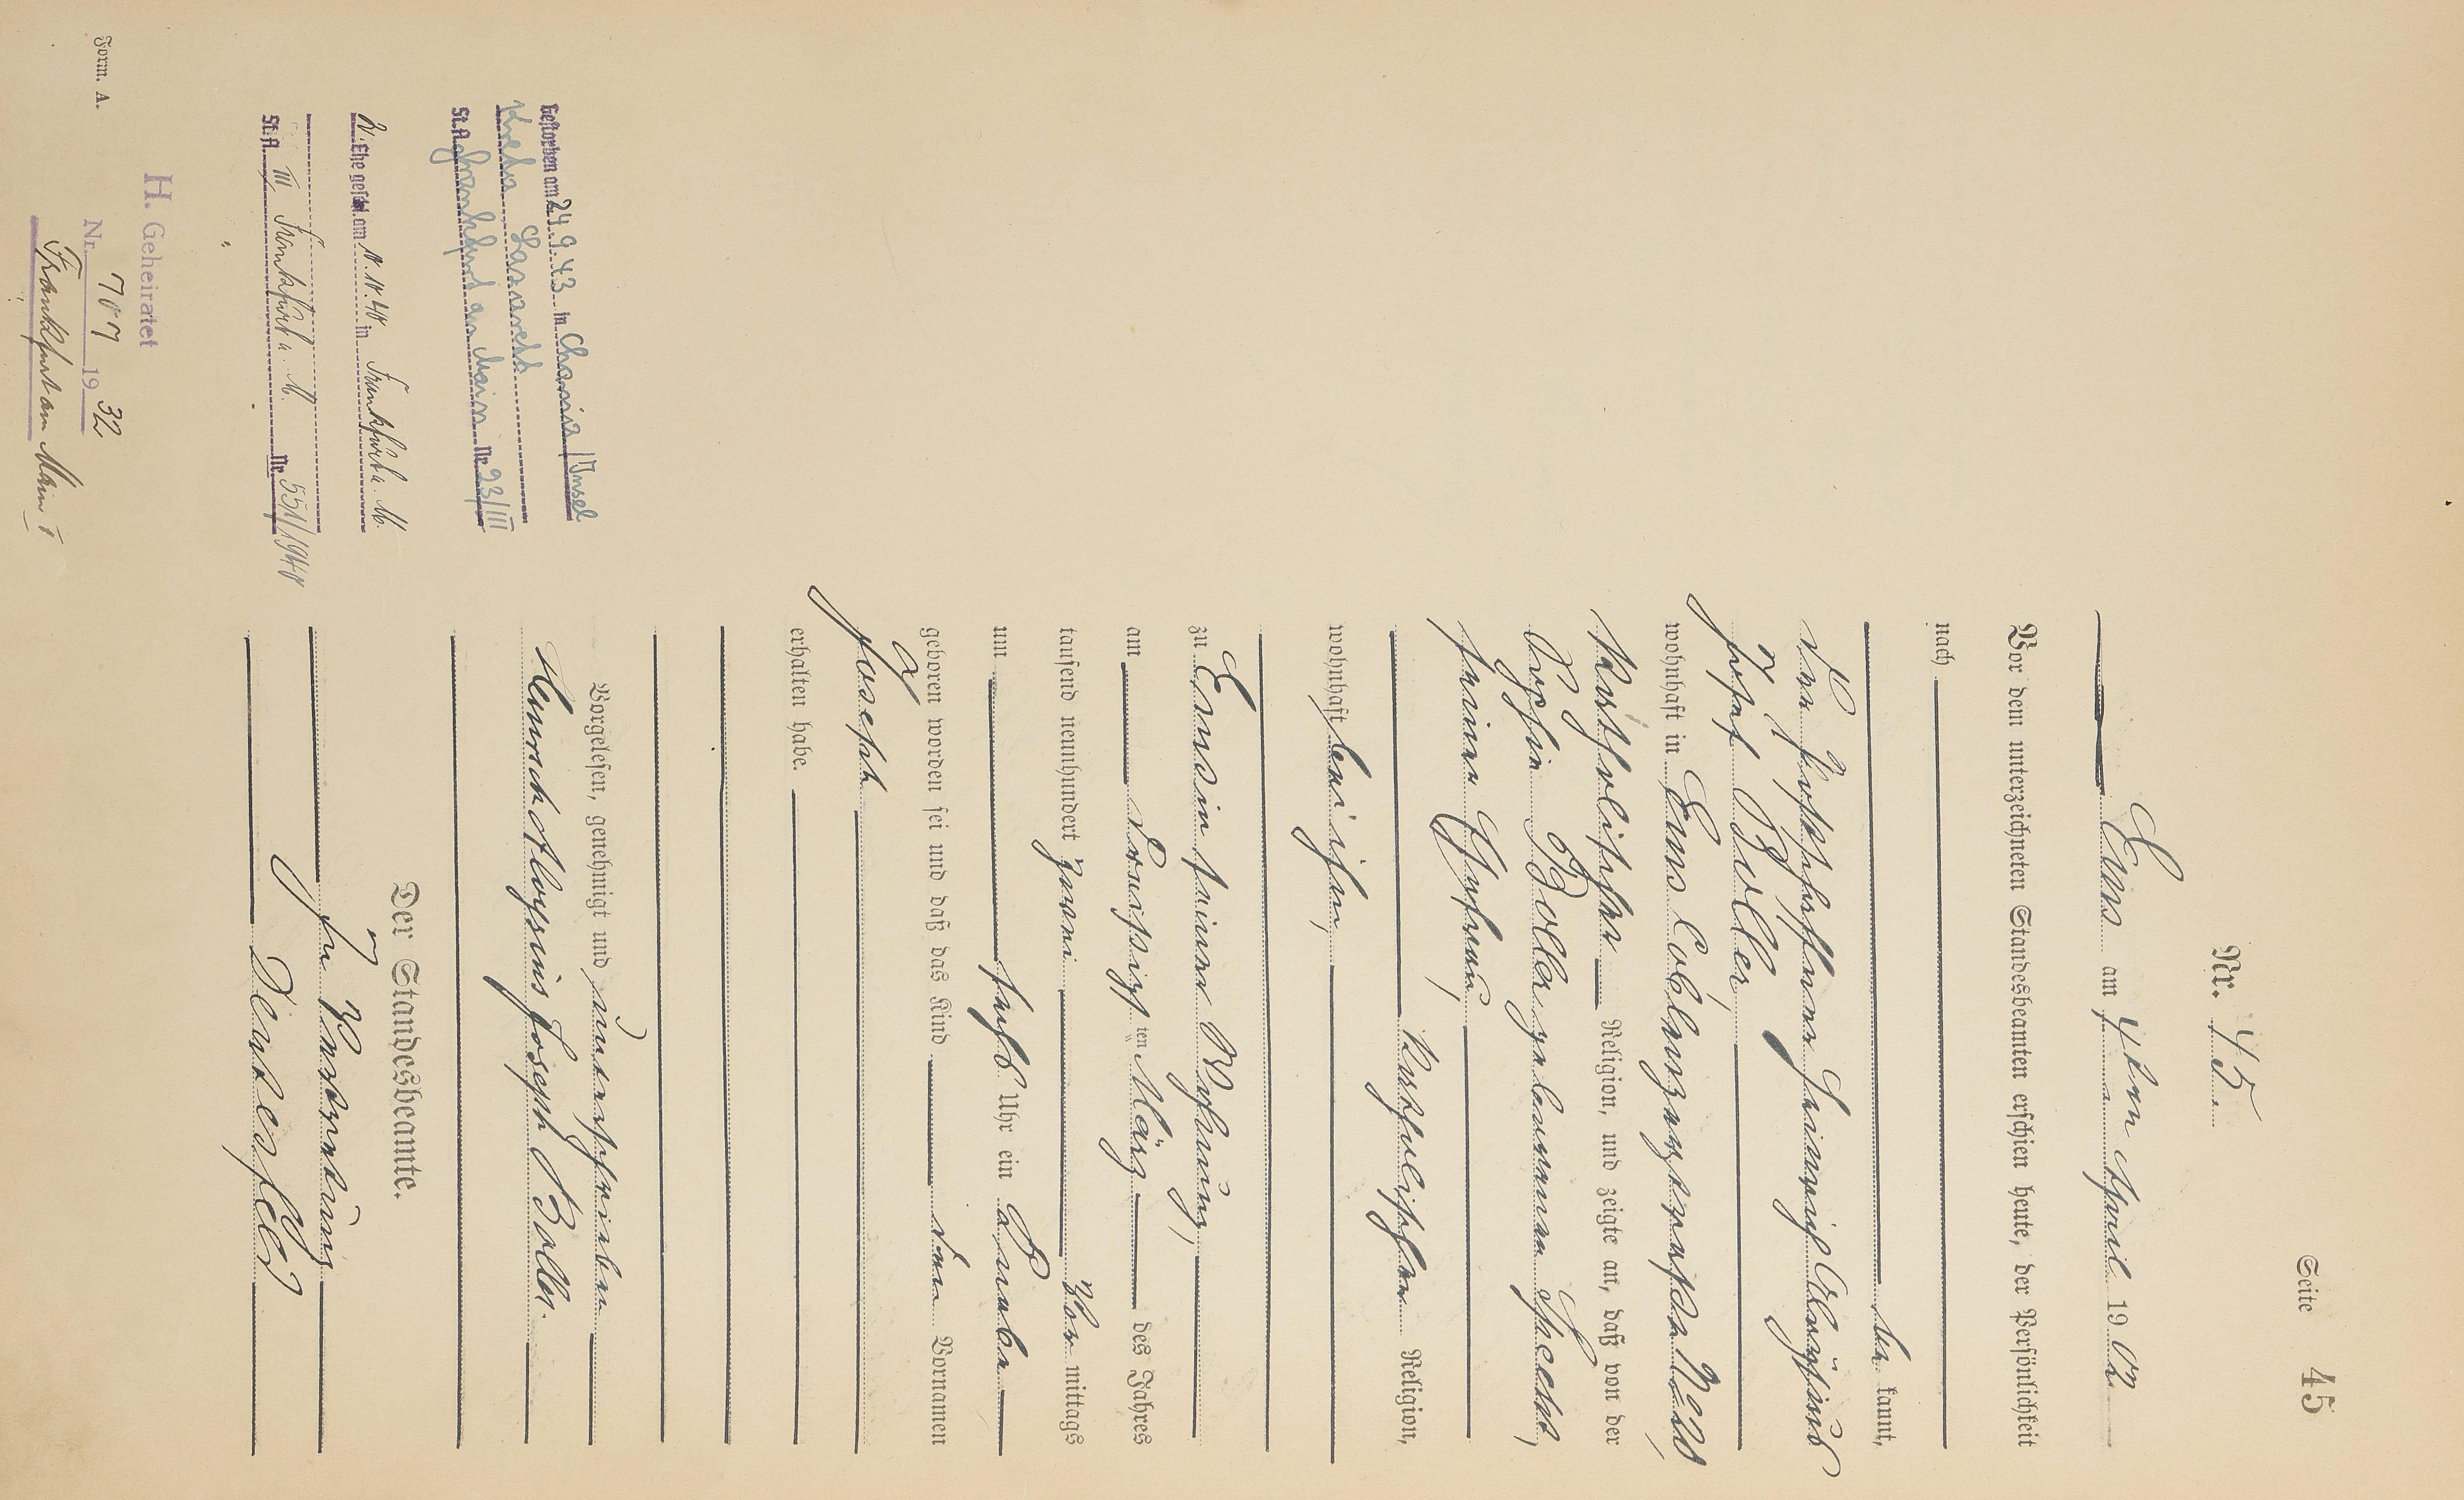 Seite 45
Nr. 45.
Ems am 4ten April 1902
Vor dem unterzeichneten Standesbeamten erschien heute, der Persönlichkeit
nach
be kannt,
der Postschaffner Heinrich Aloysius
Josef Boller,
wohnhaft in Ems Coblenzerstraße
katholischer Religion, und zeigte an, daß von der
Boller geborenen Specht,
seiner Ehefrau,
katholischer Religion,
wohnhaft bei ihm,
zu Ems in seiner Wohnung,
am dreißigsten März des Jahres
tausend neunhundert zwei Vor mittags
um sechs Uhr ein Knabe
geboren worden sei und daß das Kind den Vornamen
Joseph
erhalten habe.
Vorgelesen, genehmigt und unterschrieben
Heinrich Aloysius Joseph Boller.
Der Standesbeamte.
In Vertretung
Gestorben am 24.9.43 in Chania / Insel
Kreta Lazarett
St.A. Frankfurt am Main Nr. 23/III
II. Ehe geschl. am in Frankfurt a. M.
St.A. III Frankfurt a. M. Nr. 551/1940
H. Geheiratet
Nr. 707 1932
Frankfurt am Main I
Form. A.